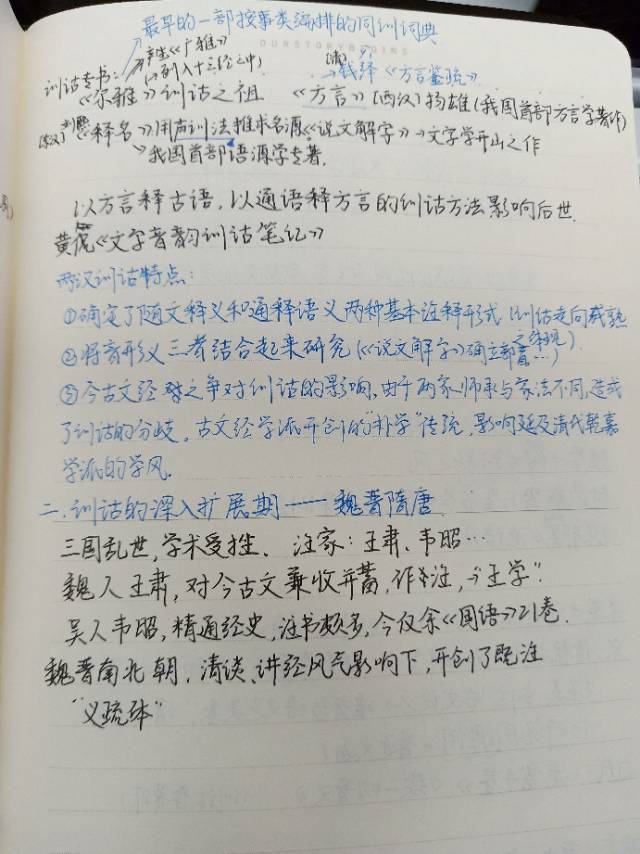 最早的一部按事类编排的同训词典
OURSTORYBEGINS
产生《广雅》
(→列入十三经之中)
(清)
→钱绎《方言笺疏》
训诂专书:
《尔雅》训诂之祖 《方言》(西汉)扬雄(我国首部方言学著作)
(东汉)刘熙《释名》→用声训法推求名源《说文解字》→文字学开山之作
→我国首部语源学专著.
以方言释古语,以通语释方言的训诂方法影响后世.
黄侃《文字音韵训诂笔记》
两汉训诂特点:
①确定了随文释义和通释语义两种基本注释形式(训诂走向成熟
之体现)
②将音形义三者结合起来研究(《说文解字》确立部首…)
③今古文经 之争对训诂的影响,由于两家师承与家法不同,造成
了训诂的分歧,古文经学派开创的"朴学"传统,影响延及清代乾嘉
学派的学风.
二.训诂的深入扩展期——魏晋隋唐
三国乱世,学术受挫. 注家:王肃、韦昭…
魏人王肃,对今古文兼收并蓄,作 注,→"王学".
吴人韦昭,精通经史,注书颇多,今仅余《国语》21卷.
魏晋南北朝,清谈、讲经风气影响下,开创了既注
"义疏体"